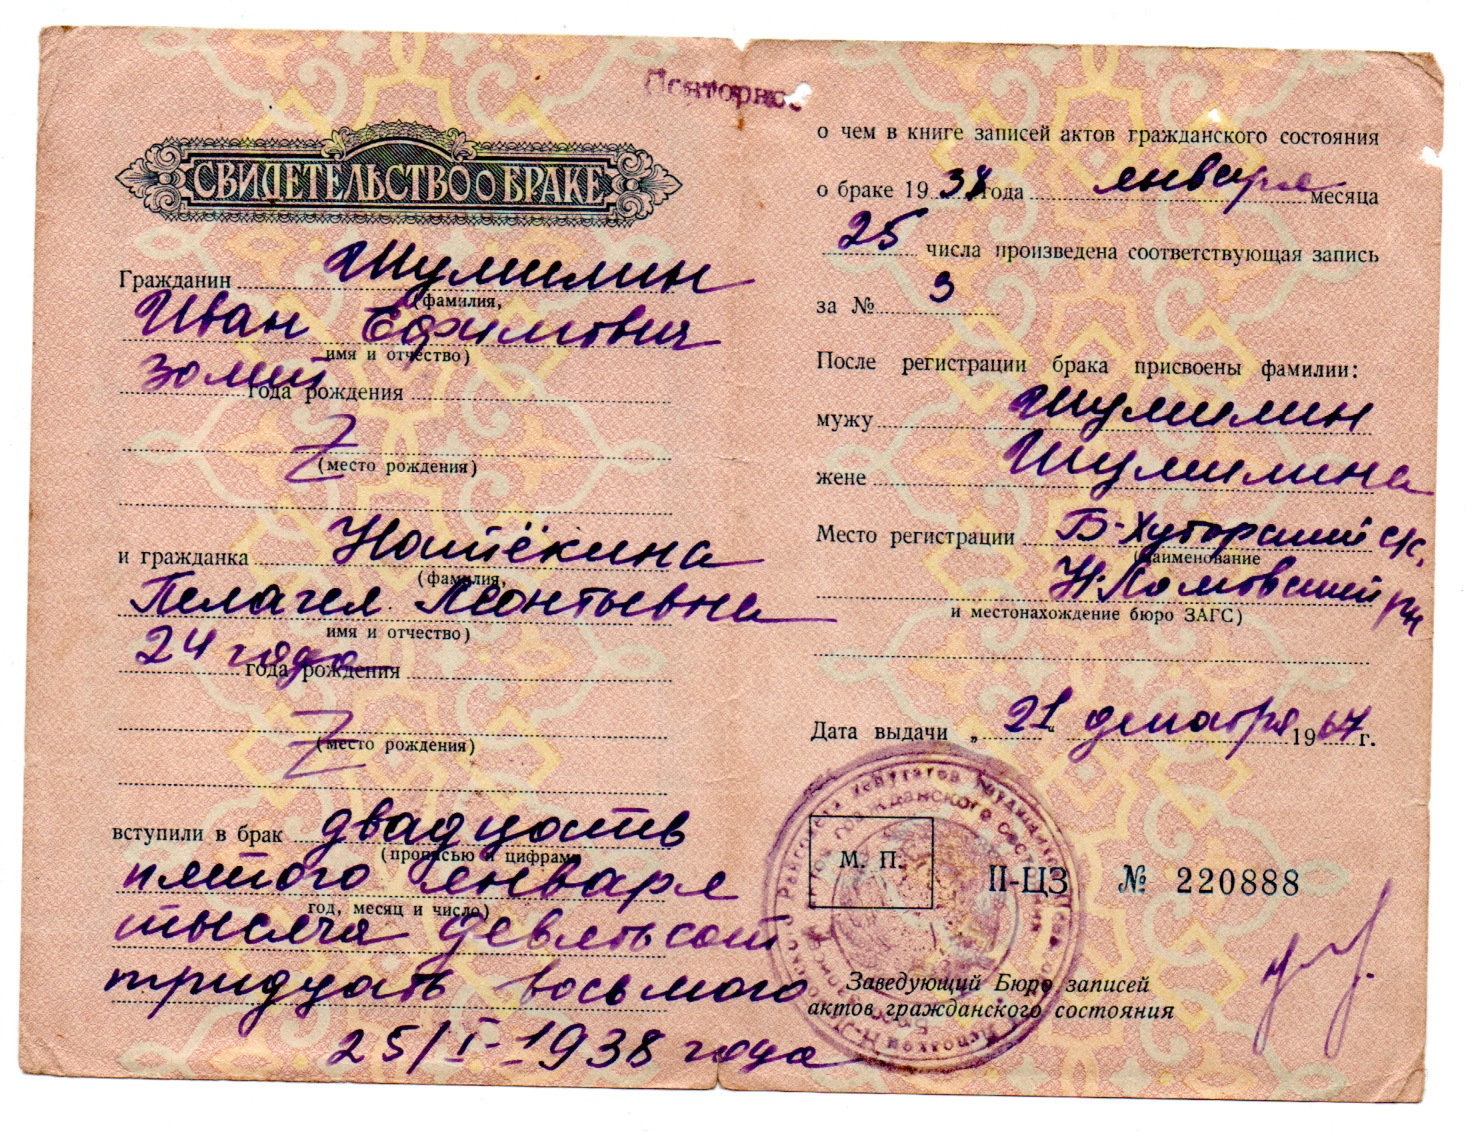 Повторное
СВИДЕТЕЛЬСТВО О БРАКЕ
Гражданин Шумилин
(фамилия,
Иван Ефимович
имя и отчество)
30 лет
года рождения
(место рождения)
и гражданка Натёкина
(фамилия,
Пелагея Леонтьевна
имя и отчество)
24 года
года рождения
(место рождения)
вступили в брак двадцать
(прописью и цифрами
пятого января
год, месяц и число)
тысяча девятьсот
тридцать восьмого
25/I-1938 года
о чем в книге записей актов гражданского состояния
о браке 1938 года января месяца
25 числа произведена соответствующая запись
за № 3
После регистрации брака присвоены фамилии:
мужу Шумилин
жене Шумилина
Место регистрации Б-Хуторский с/с,
(наименование
Н-Ломовский р-н
и местонахождение бюро ЗАГС)
Дата выдачи „21“ декабря 1967 г.
М. П.
II-ЦЗ № 220888
Заведующий Бюро записей
актов гражданского состояния